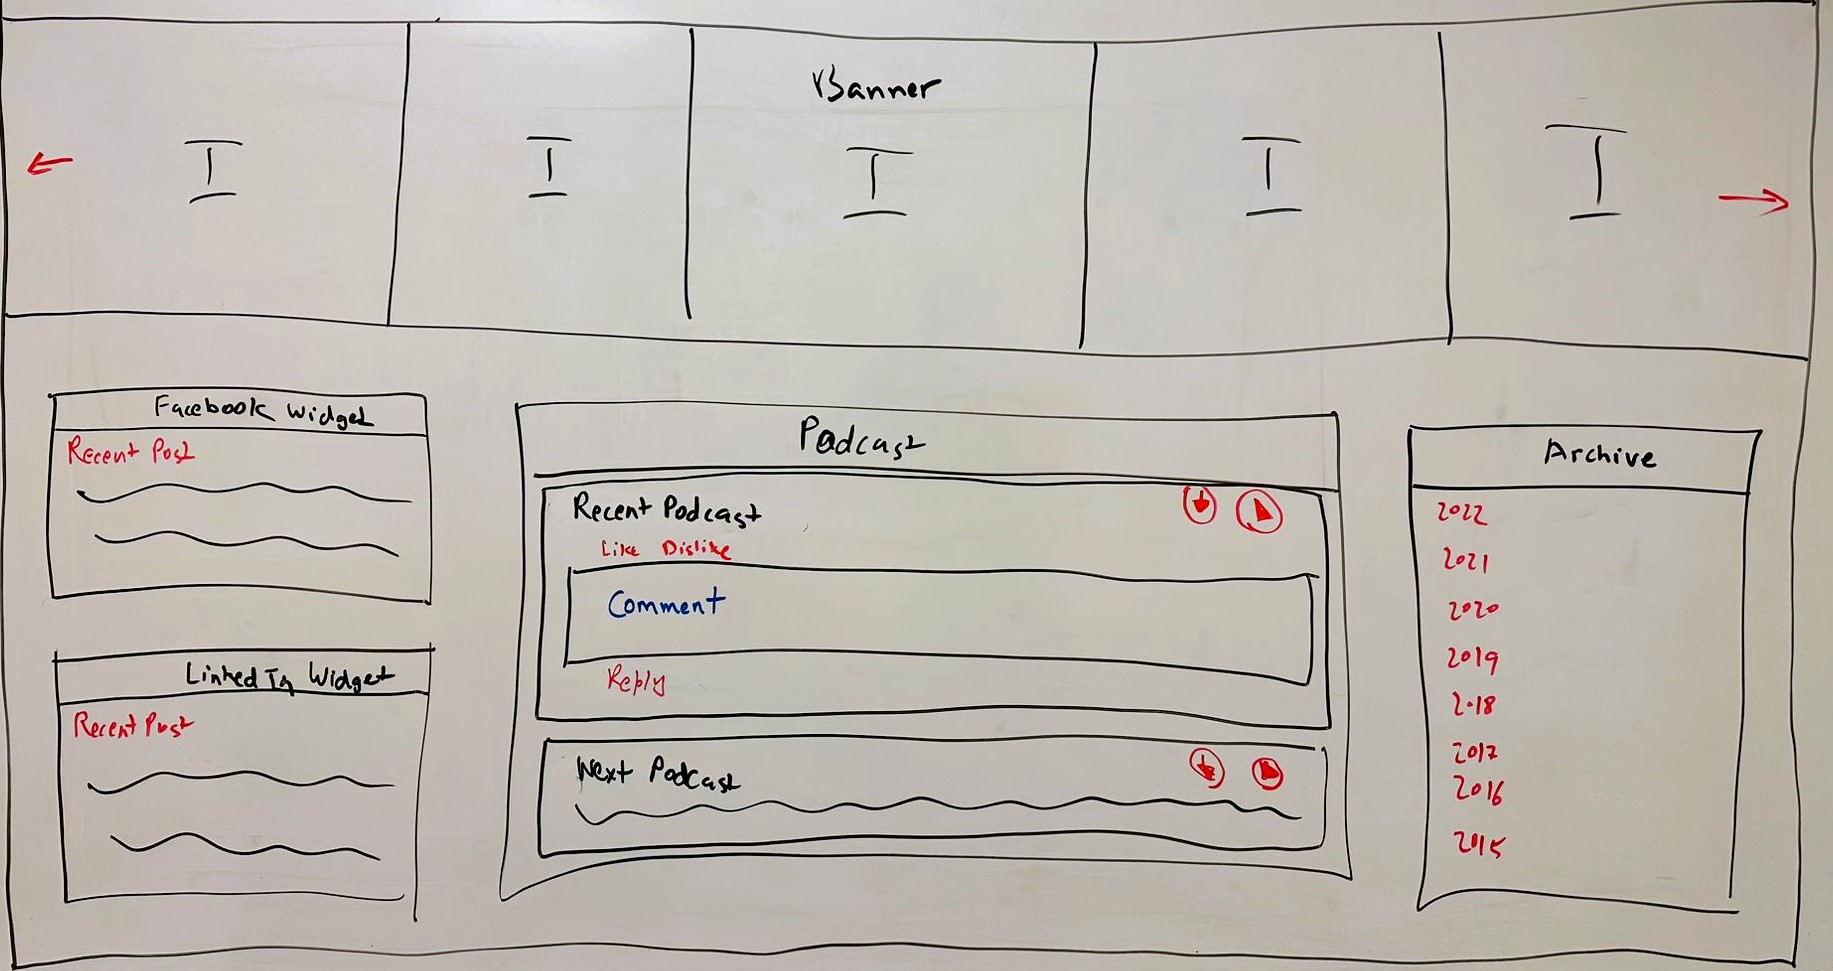 Banner
I I I I I
Facebook Widget
Recent Post
LinkedIn Widget
Recent Post
Podcast
Recent Podcast
Like Dislike
Comment
Reply
Next Podcast
Archive
2022
2021
2020
2019
2018
2017
2016
2015